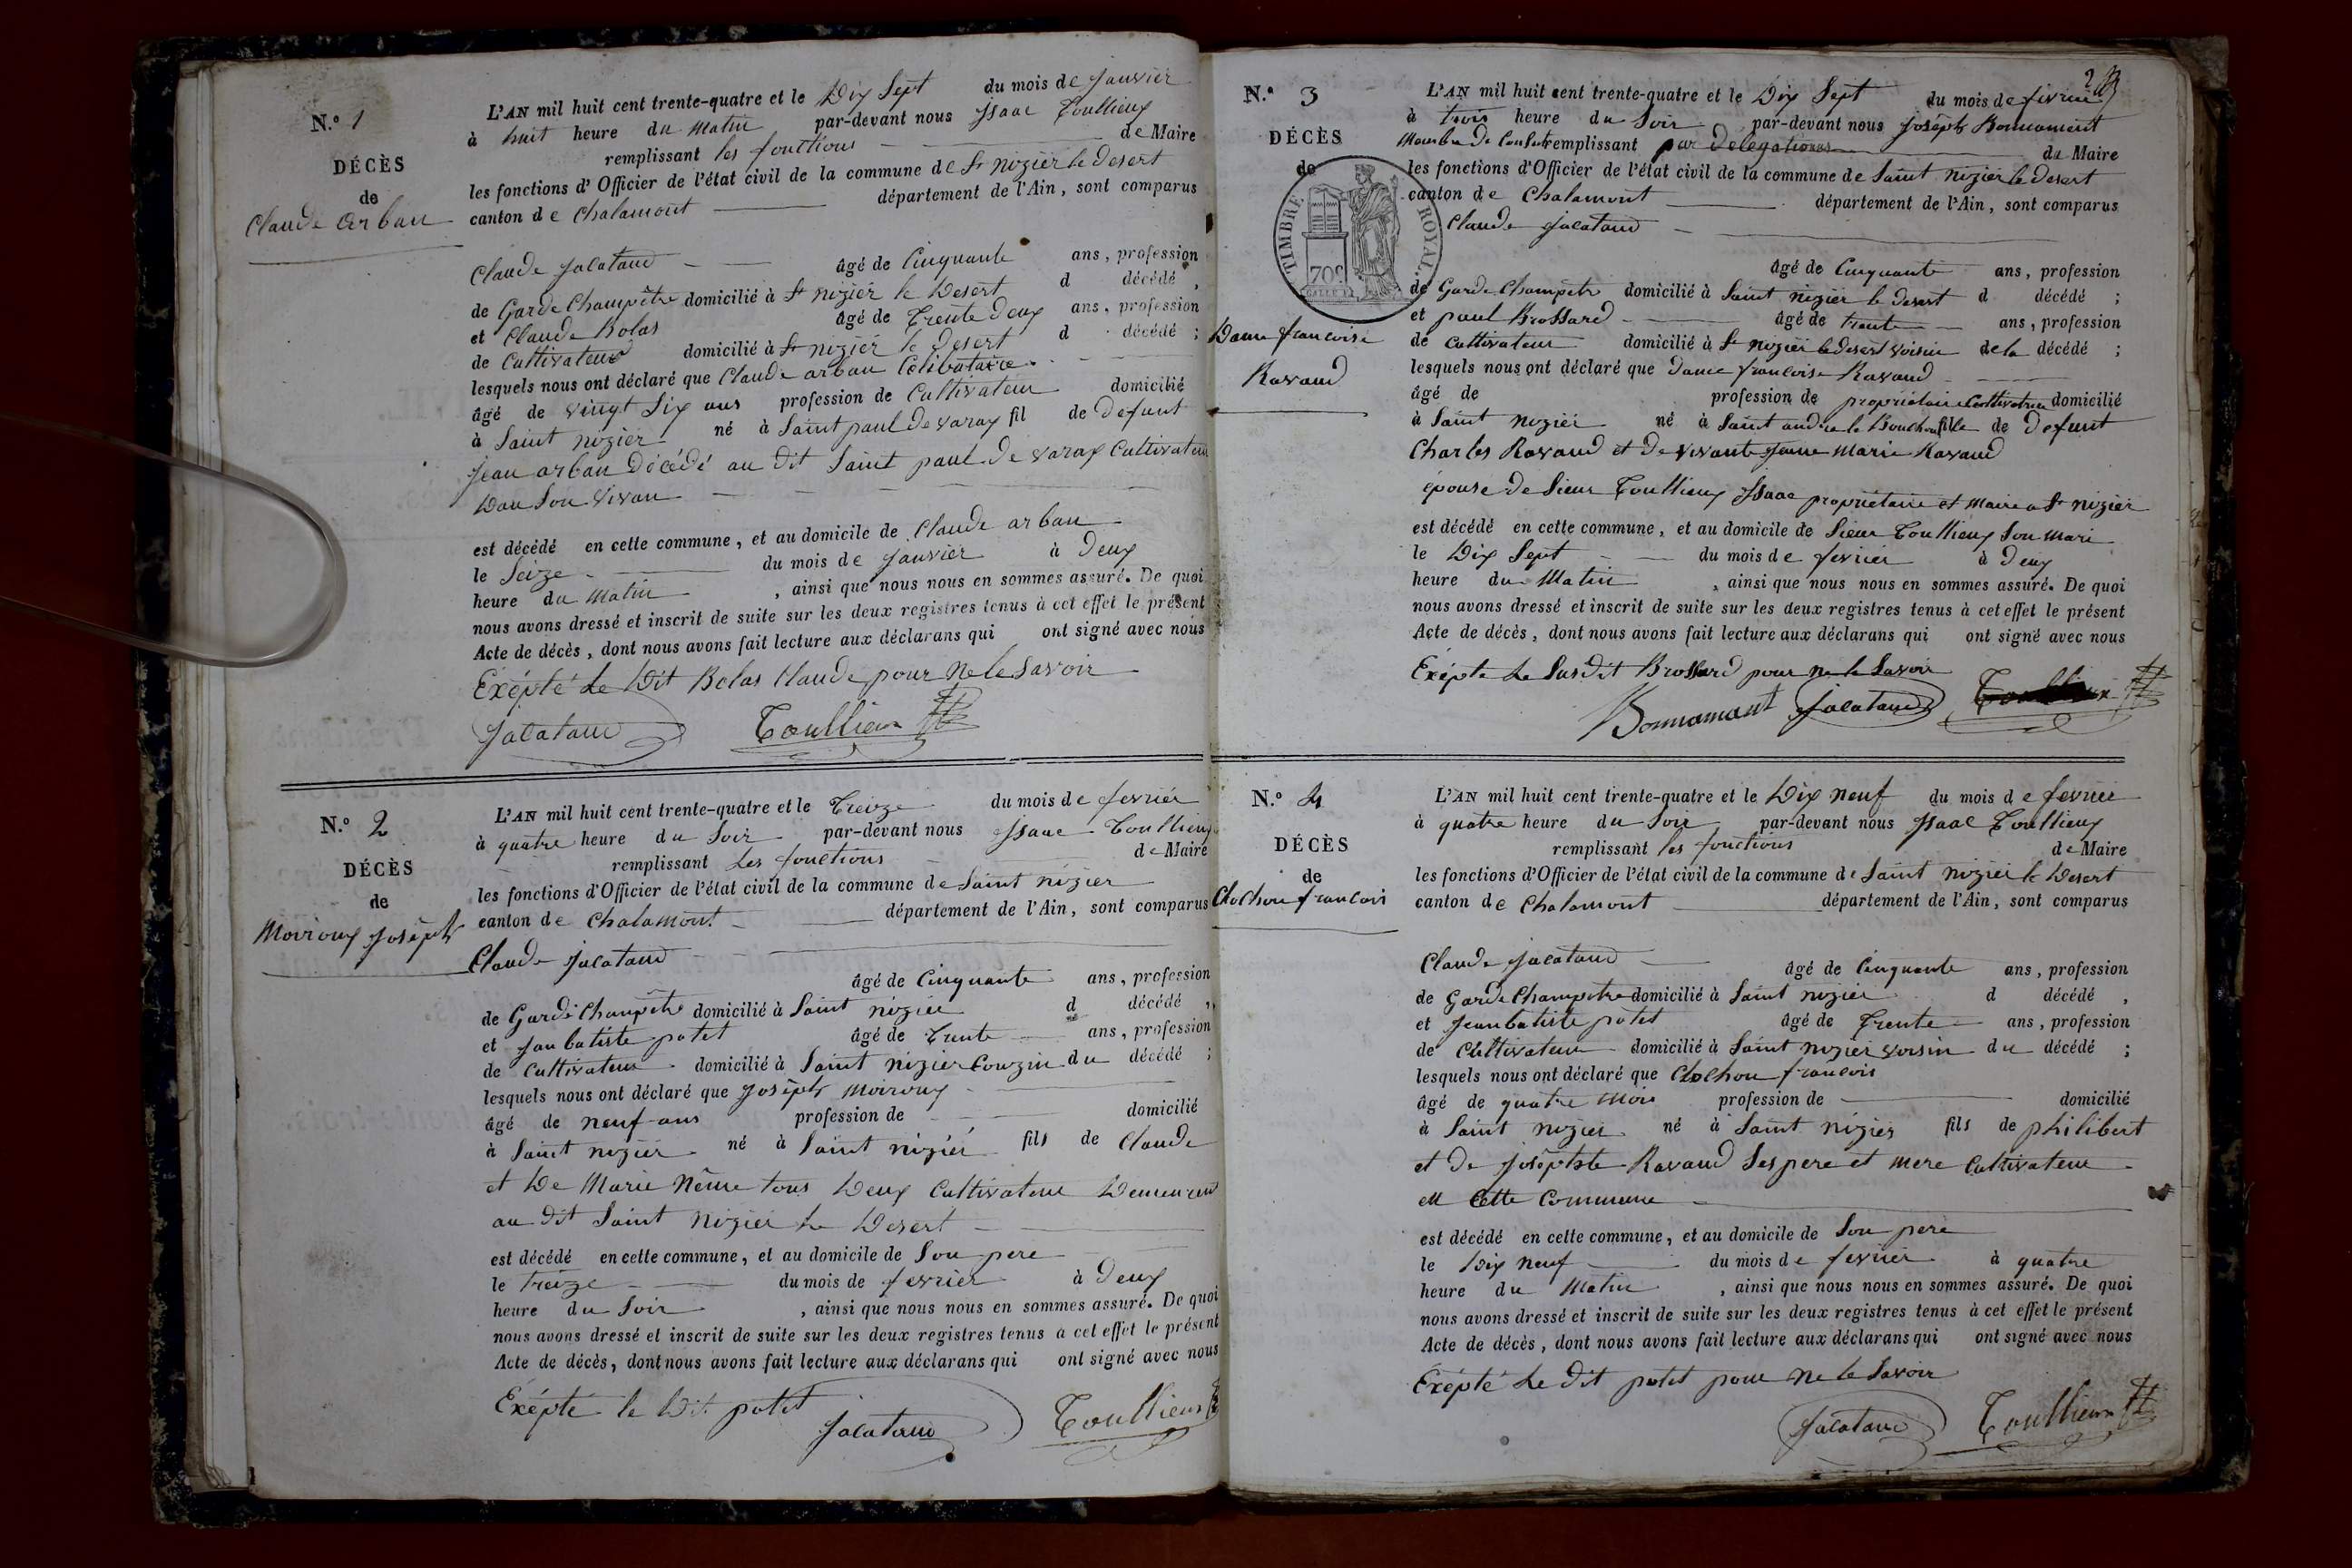 N.o 1
DÉCÈS
de
Claude arban
L'AN mil huit cent trente-quatre et le Dix Sept du mois de janvier
à huit heure du Matin par-devant nous jsaac Toullieux
remplissant les fonctions de Maire
les fonctions d'Officier de l'état civil de la commune de St nizier le desert
canton de Chalamont département de l'Ain, sont comparus
Claude jalataud âgé de Cinquante ans, profession
de Garde Champêtre domicilié à St nizier le Desert d décédé,
et Claude Bolas âgé de Trente deux ans, profession
de Cultivateur domicilié à St nizier le Desert d décédé;
lesquels nous ont déclaré que Claude arban Célibataire
âgé de vingt Six ans profession de Cultivateur domicilié
à Saint nizier né à Saint paul de varax fil de Defunt
jean arban Décédé au dit Saint paul de varax Cultivateur
Dan Son vivan
est décédé en cette commune, et au domicile de Claude arban
le Seize du mois de janvier à Deux
heure du Matin, ainsi que nous nous en sommes assuré. De quoi
nous avons dressé et inscrit de suite sur les deux registres tenus à cet effet le présent
Acte de décès, dont nous avons fait lecture aux déclarans qui ont signé avec nous
Exépté Le Dit Bolas Claude pour Ne le Savoir
jalataud Toullieux
N.o 2
DÉCÈS
de
Moiroux joséph
L'AN mil huit cent trente-quatre et le Treize du mois de fevrier
à quatre heure du Soir par-devant nous jsaac Toullieux
remplissant Les fonctions de Maire
les fonctions d'Officier de l'état civil de la commune de Saint nizier
canton de Chalamont département de l'Ain, sont comparus
Claude jalataud
âgé de Cinquante ans, profession
de Garde Champêtre domicilié à Saint nizier d décédé,
et jan batiste potet âgé de Trente ans, profession
de Cultivateur domicilié à Saint nizier Couzin du décédé;
lesquels nous ont déclaré que joséph Moiroux
âgé de neuf ans profession de domicilié
à Saint nizier né à Saint nizier fils de Claude
et De Marie Nême tous Deux Cultivateur Demeurend
au dit Saint Nizier Le Desert
est décédé en cette commune, et au domicile de Son pere
le treize du mois de fevrier à Deux
heure du Soir, ainsi que nous nous en sommes assuré. De quoi
nous avons dressé et inscrit de suite sur les deux registres tenus à cet effet le présent
Acte de décès, dont nous avons fait lecture aux déclarans qui ont signé avec nous
Exépté le Dit potet
jalataud Toullieux
2
N.o 3
DÉCÈS
de
TIMBRE ROYAL
70c.
Dame francoise
Ravaud
L'AN mil huit cent trente-quatre et le Dix Sept du mois de fevrier
à trois heure du Soir par-devant nous joséph Bonnamant
Membre de Conseil remplissant par delegations du Maire
les fonctions d'Officier de l'état civil de la commune de Saint nizier le desert
canton de Chalamont département de l'Ain, sont comparus
Claude jalataud
âgé de Cinquante ans, profession
de Garde Champetre domicilié à Saint nizier le desert d décédé;
et paul Brossard âgé de trente ans, profession
de Cultivateur domicilié à St nizier le desert voisin de la décédé;
lesquels nous ont déclaré que Dame francoise Ravaud
âgé de profession de propriétaire Cultivatrice domicilié
à Saint nizier né à Saint andre le Bouchoux fille de defunt
Charles Ravaud et De vivante jeane Marie Ravaud
épouse de Sieur Toullieux jsaac propriétaire et Maire a St nizier
est décédé en cette commune, et au domicile de Sieur Toullieux Son Mari
le Dix Sept du mois de fevrier à Deux
heure du Matin, ainsi que nous nous en sommes assuré. De quoi
nous avons dressé et inscrit de suite sur les deux registres tenus à cet effet le présent
Acte de décès, dont nous avons fait lecture aux déclarans qui ont signé avec nous
Exépté Le Susdit Brossard pour ne le Savoir
Bonnamant jalataud Toullieux
N.o 4
DÉCÈS
de
Clochon francois
L'AN mil huit cent trente-quatre et le Dix neuf du mois de fevrier
à quatre heure du Soir par-devant nous jsaac Toullieux
remplissant les fonctions de Maire
les fonctions d'Officier de l'état civil de la commune de Saint nizier le Desert
canton de Chalamont département de l'Ain, sont comparus
Claude jalataud âgé de Cinquante ans, profession
de Garde Champetre domicilié à Saint nizier d décédé,
et jean batiste potet âgé de Trente ans, profession
de Cultivateur domicilié à Saint nizier voisin du décédé;
lesquels nous ont déclaré que Clochon francois
âgé de quatre Mois profession de domicilié
à Saint nizier né à Saint nizier fils de philibert
et De joséphte Ravaud Ses pere et mere Cultivateur
en Cette Commune
est décédé en cette commune, et au domicile de Son pere
le Dix neuf du mois de fevrier à quatre
heure du Matin, ainsi que nous nous en sommes assuré. De quoi
nous avons dressé et inscrit de suite sur les deux registres tenus à cet effet le présent
Acte de décès, dont nous avons fait lecture aux déclarans qui ont signé avec nous
Exépté Le dit potet pour Ne le Savoir
jalataud Toullieux